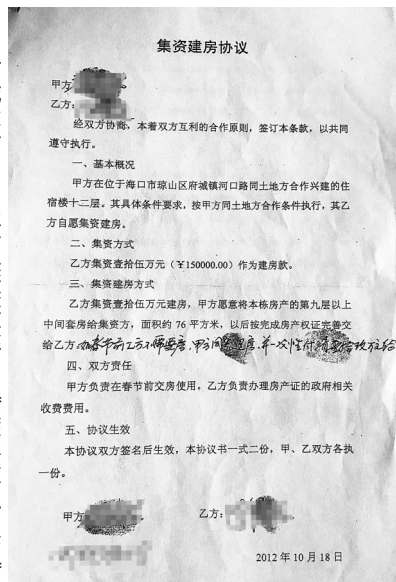 集资建房协议
甲方
乙方:
经双方协商,本着双方互利的合作原则,签订本条款,以共同
遵守执行。
一、基本概况
甲方在位于海口市琼山区府城镇河口路同土地方合作兴建的住
宿楼十二层。其具体条件要求,按甲方同土地方合作条件执行,其乙
方自愿集资建房。
二、集资方式
乙方集资壹拾伍万元(¥150000.00)作为建房款。
三、集资建房方式
乙方集资壹拾伍万元建房,甲方愿意将本栋房产的第九层以上
中间套房给集资方,面积约 76 平方米,以后按完成房产权证完善交
给乙方
四、双方责任
甲方负责在春节前交房使用,乙方负责办理房产证的政府相关
收费费用。
五、协议生效
本协议双方签名后生效,本协议书一式二份,甲、乙双方各执
一份。
甲方
乙方:
2012 年 10 月 18 日